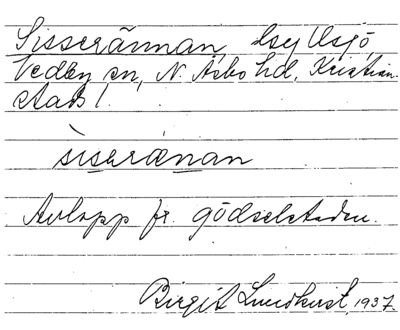 Sisserännan, lsy Usjö,
Vedby sn, N. Åsbo hd, Kristian-
stads l.
sìserænan
Avlopp fr. gödselstaden.
Birgit Lundkvist, 1937.